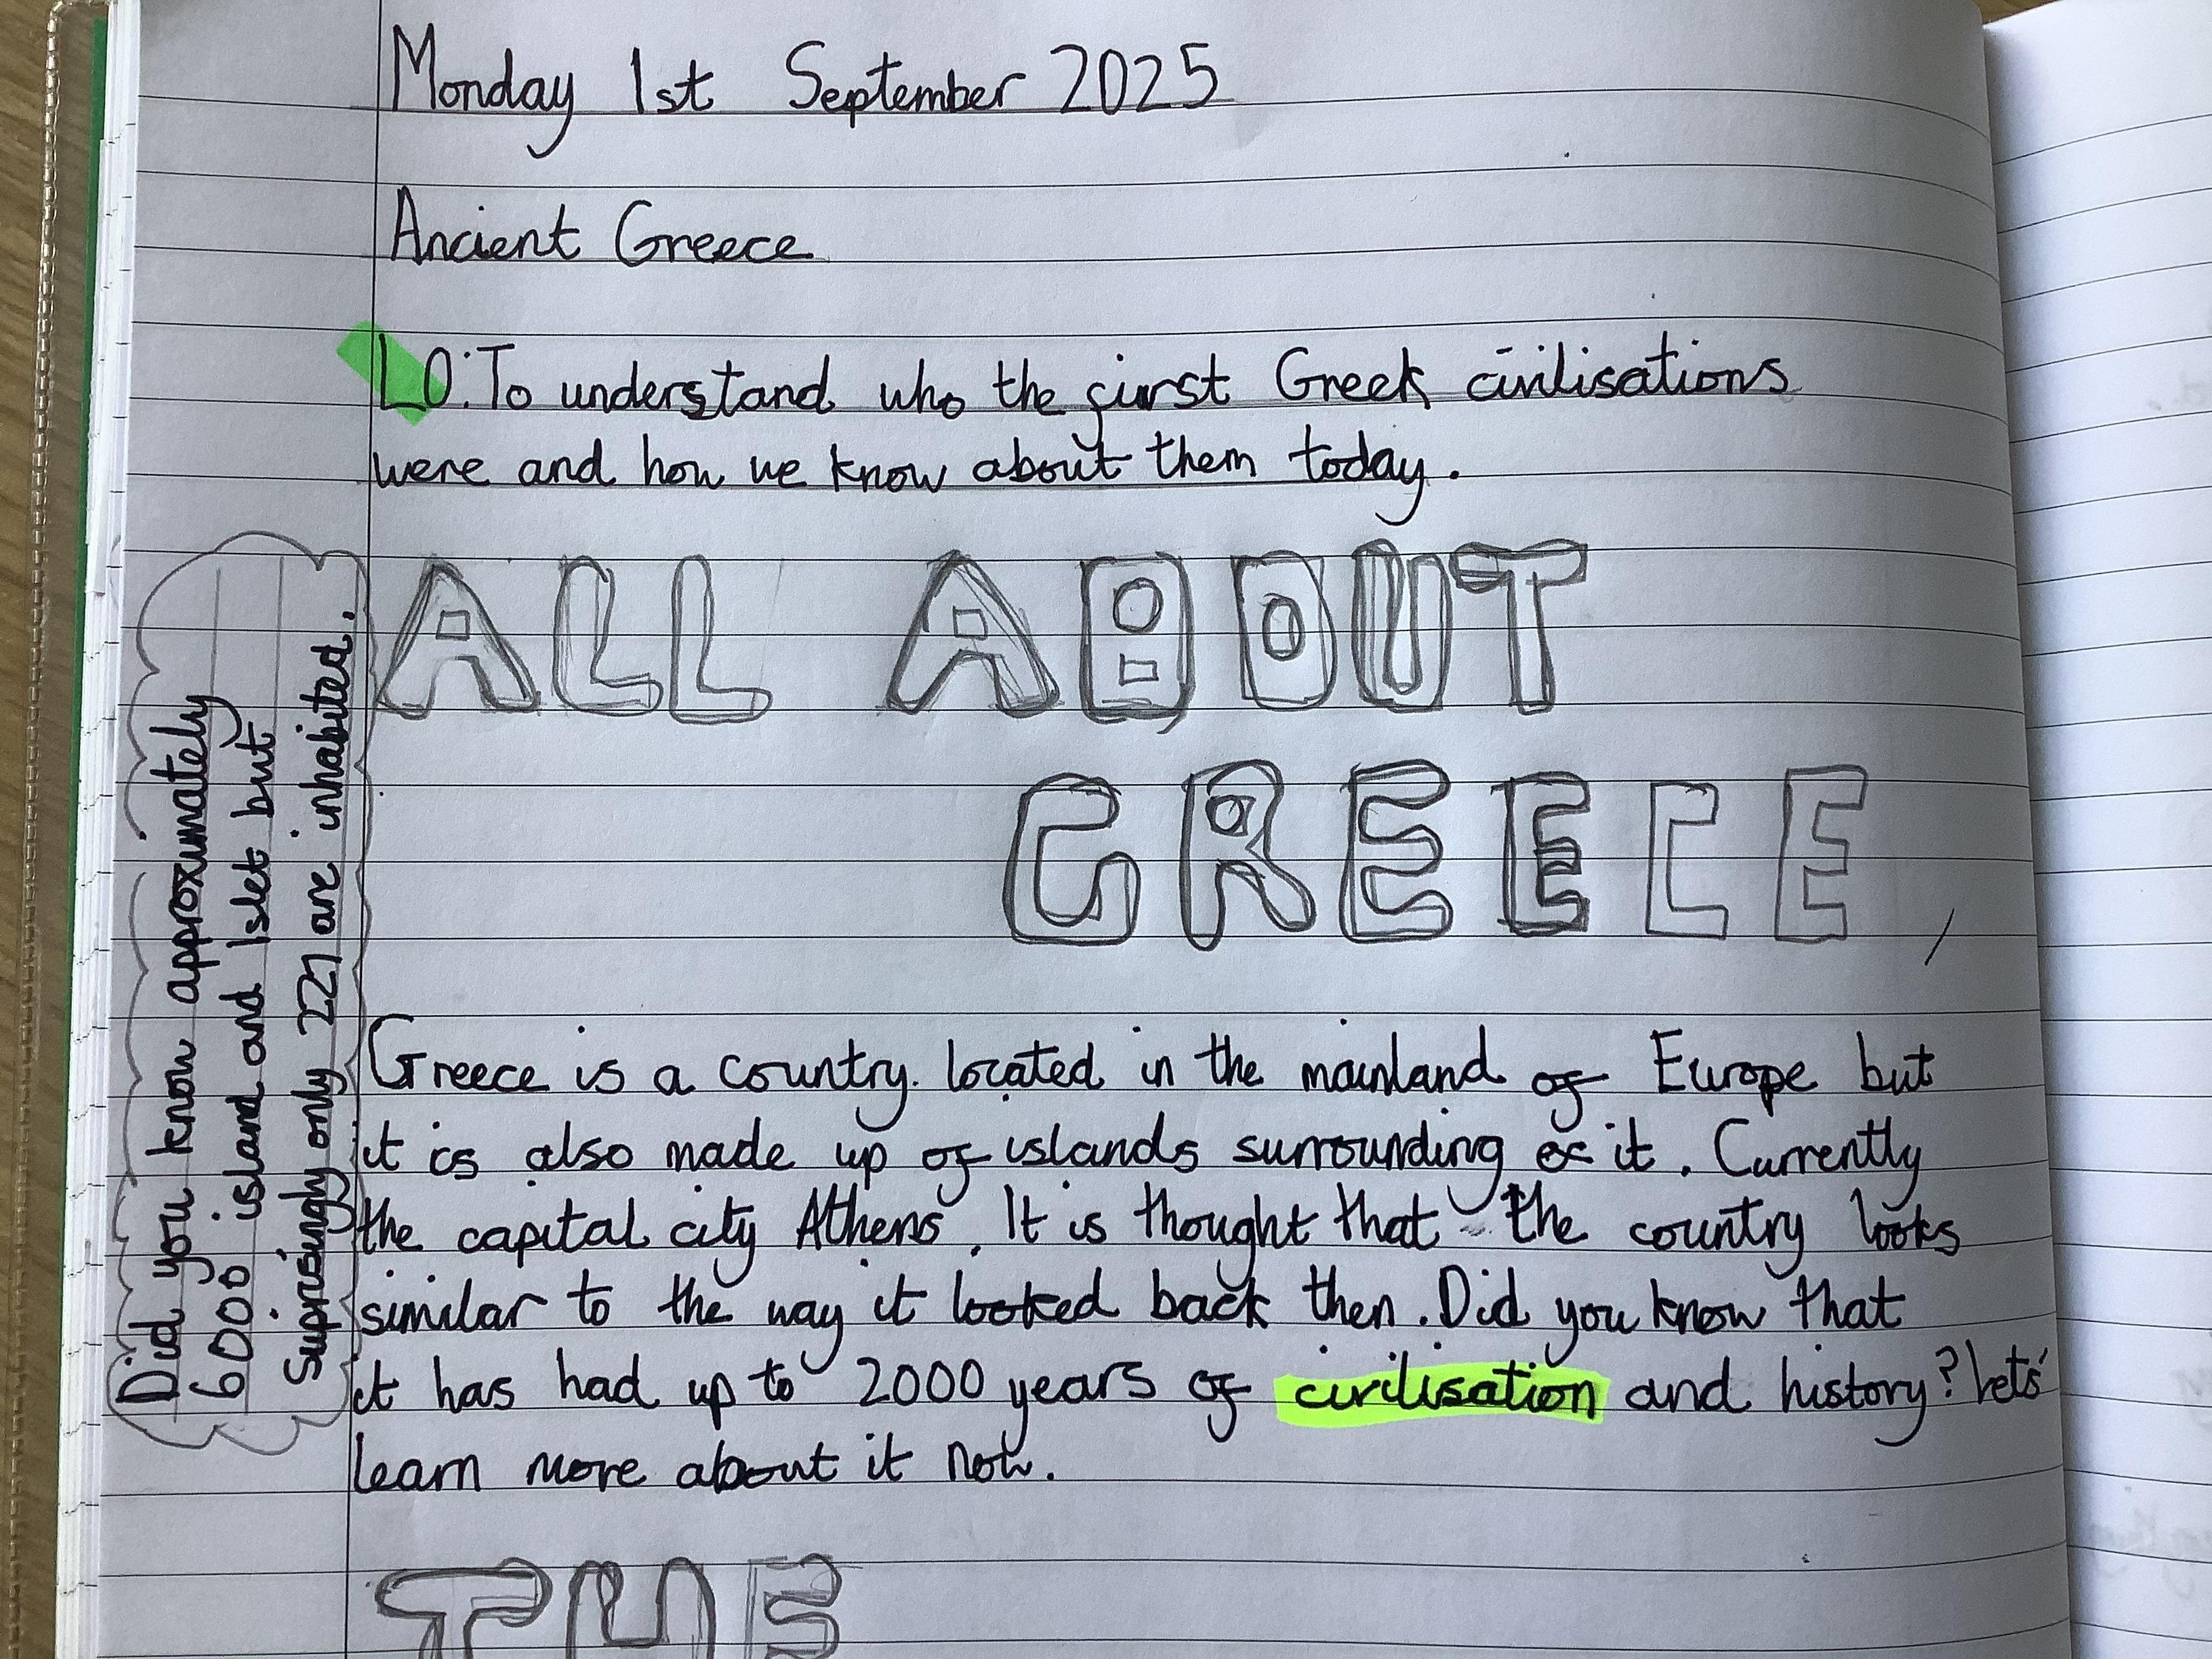 Monday 1st September 2025
Ancient Greece
LO: To understand who the first Greek civilisations
were and how we know about them today.
ALL ABOUT
GREECE
Did you know approximately
6000 island and Islet but
suprisingly only 227 are inhabited.
Greece is a country. located in the mainland of Europe but
it is also made up of islands surrounding of it. Currently
the capital city Athens. It is thought that the country looks
similar to the way it looked back then. Did you know that
it has had up to 2000 years of civilisation and history? Lets'
learn more about it now.
THE